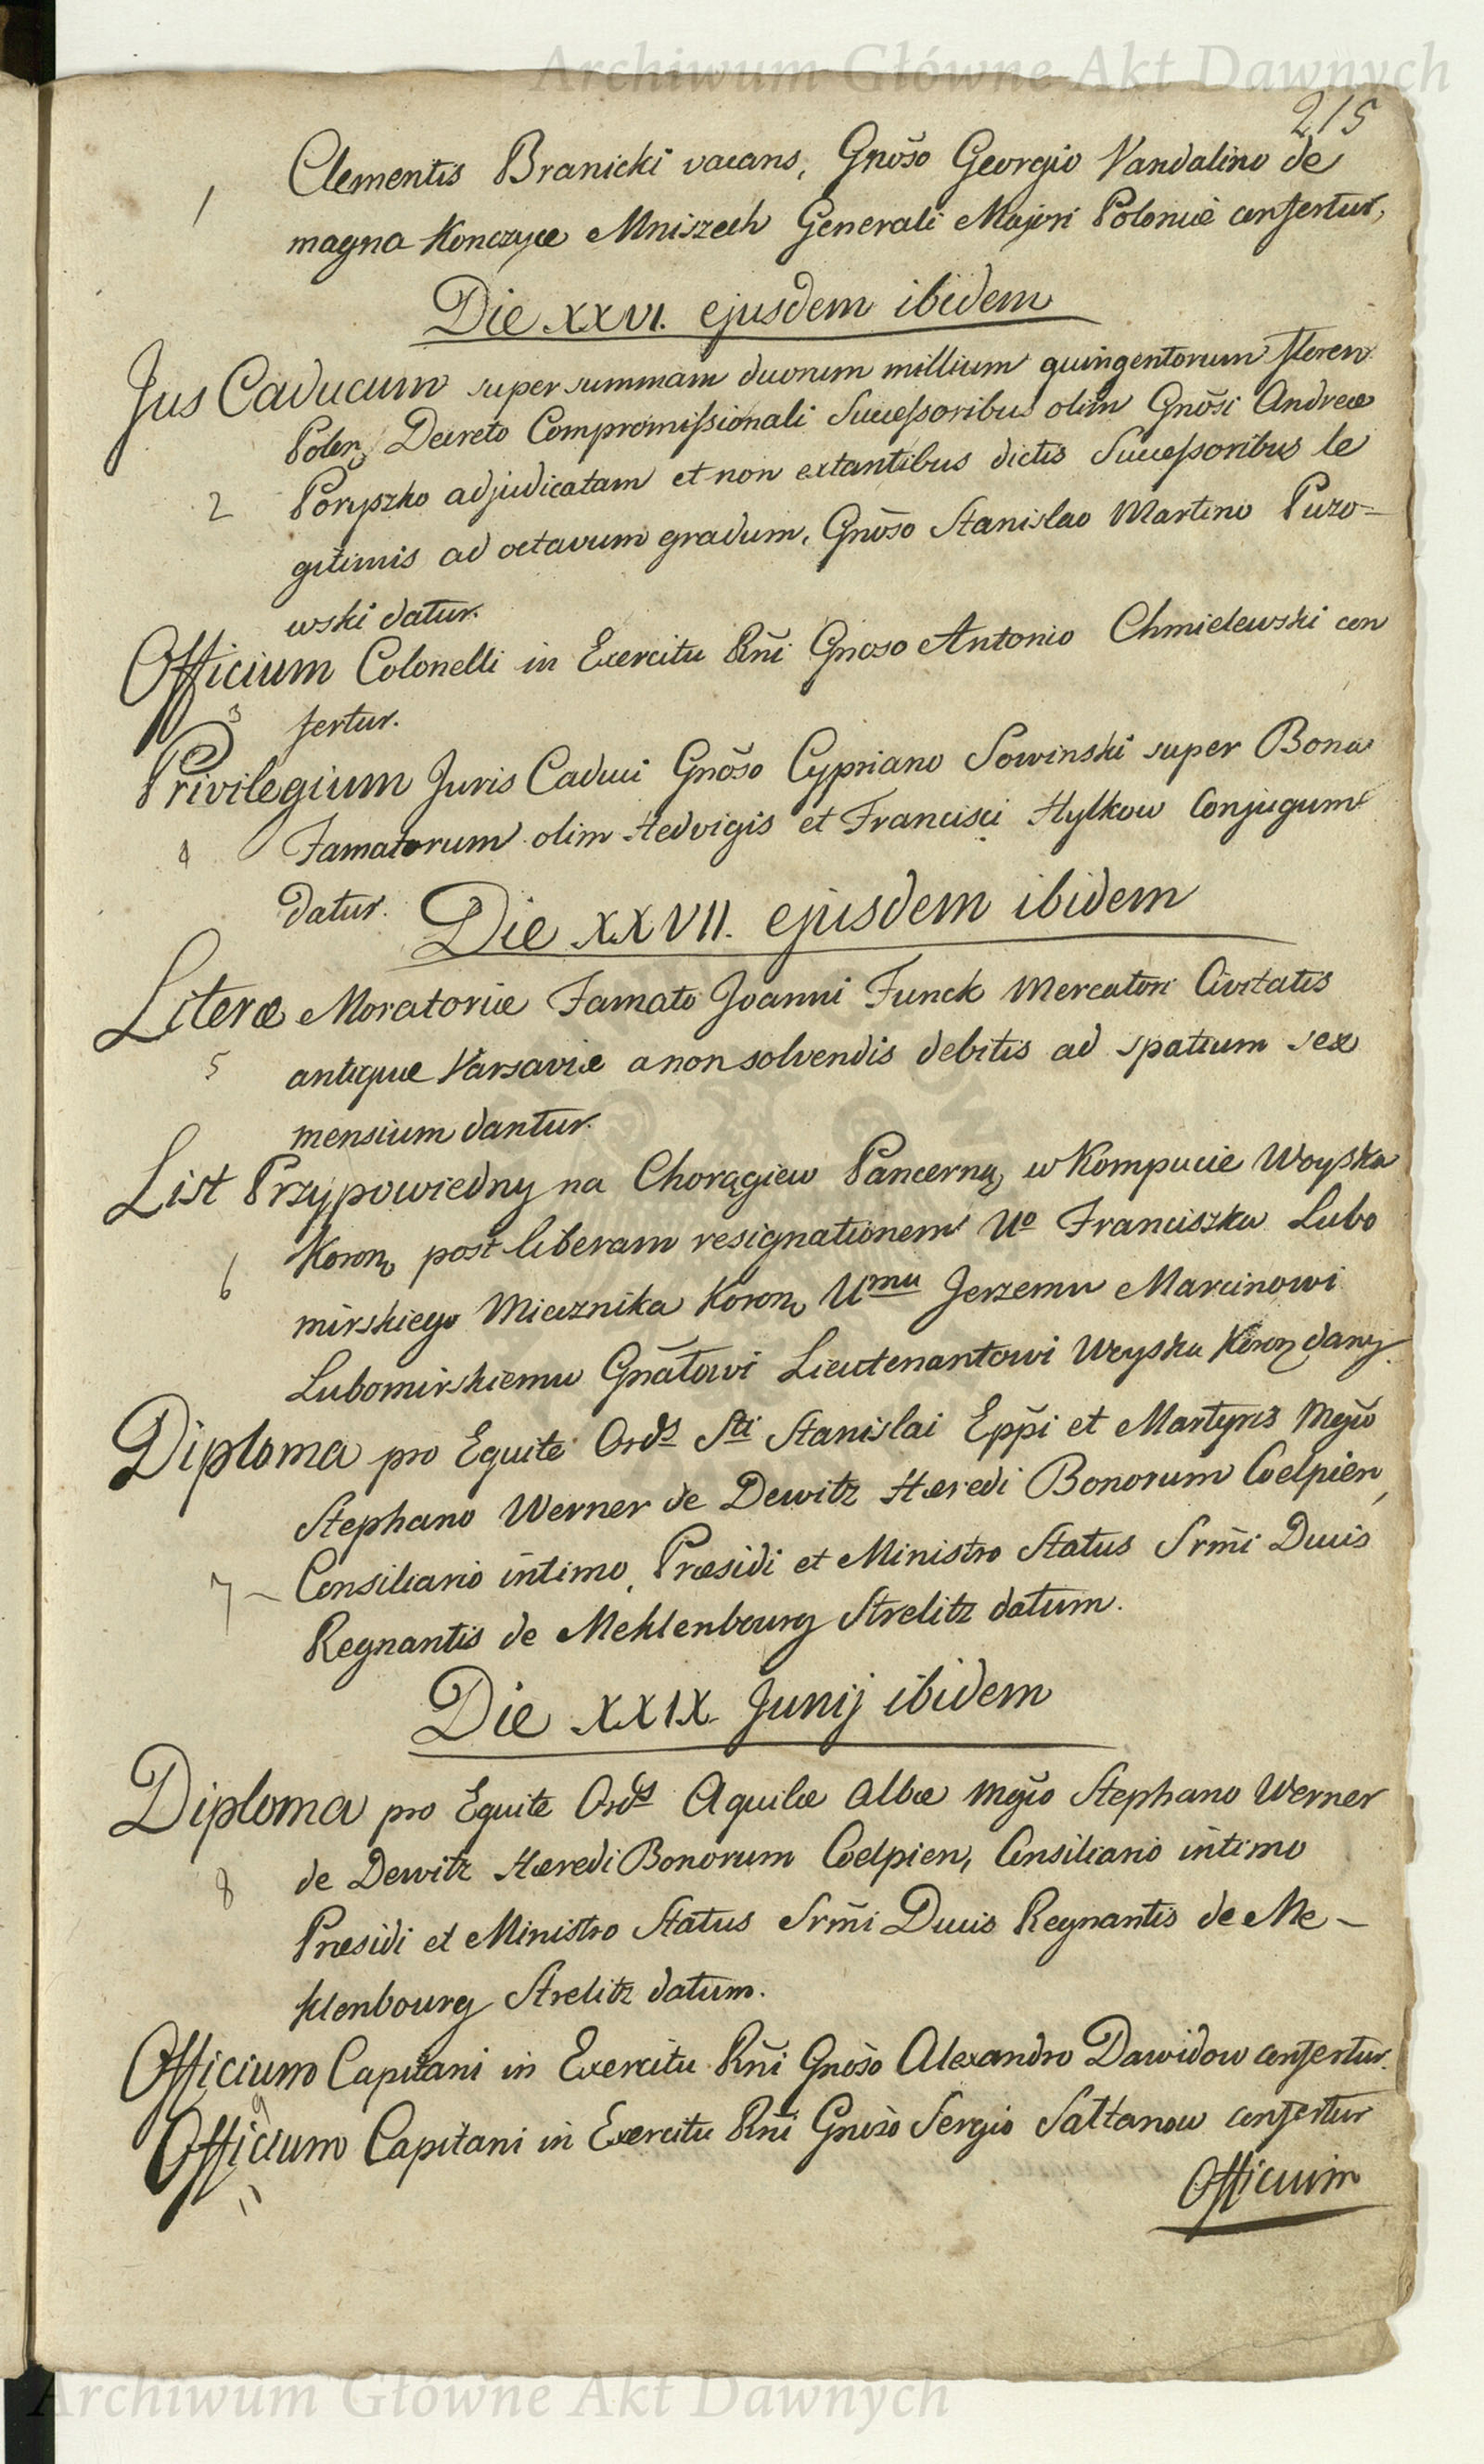 Archiwum Główne Akt Dawnych
215
Clementis Branicki vacans, Gnõso Georgio Vandalino de
1 magna Konczyce Mniszech Generali Majori Poloniæ confertur,
Die XXVI. ejusdem ibidem
Jus Caducum super summam duorum millium quingentorum Floren
Polon, Decreto Compromissionali Successoribus olim Gnõsi Andreæ
2 Poryszko adjudicatam et non extantibus dictis Successoribus le
gitimis ad octavum gradum, Gnõso Stanislao Martino Puzo=
wski datur.
Officium Colonelli in Exercitu Rñi Gnoso Antonio Chmielewski con
3 fertur.
Privilegium Juris Caduci Gnõso Cypriano Sowinski super Bona
4 Famatorum olim Hedvigis et Francisci Hylkow Conjugum
datur.
Die XXVII. ejusdem ibidem
Literæ Moratoriæ Famato Joanni Funck Mercatori Civitatis
5 antiquæ Varsaviæ a non solvendis debitis ad spatium sex
mensium dantur.
List Przypowiedny na Chorągiew Pancerną w Kompucie Woyska
6 Koron, post liberam resignationem Uº Franciszka Lubo
mirskiego Miecznika Koron, Uᵐᵘ Jerzemu Marcinowi
Lubomirskiemu Gñałowi Lieutenantowi Woyska Koron dany.
Diploma pro Equite Ordˢ Sᵗⁱ Stanislai Epp̃i et Martyris Mg̃co
Stephano Werner de Dewitz Hæredi Bonorum Coelpien,
7 – Consiliario intimo, Præsidi et Ministro Status Srm̃i Ducis
Regnantis de Meklenbourg Strelitz datum.
Die XXIX. Junij ibidem
Diploma pro Equite Ordˢ Aquilæ Albæ Mg̃co Stephano Werner
8 de Dewitz Hæredi Bonorum Coelpien, Consiliario intimo
Præsidi et Ministro Status Srm̃i Ducis Regnantis de Me –
klenbourg Strelitz datum.
Officium Capitani in Exercitu Rñi Gnõso Alexandro Dawidow confertur.
9
Officium Capitani in Exercitu Rñi Gnõso Sergio Sattanow confertur
11
Officium
Archiwum Główne Akt Dawnych